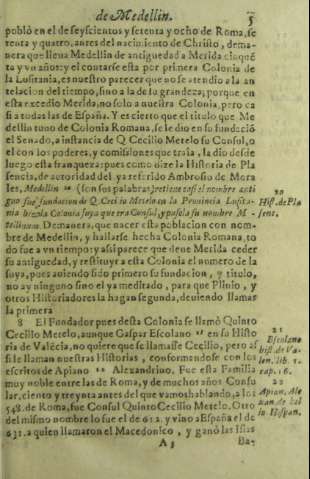 de Medellin. 5
poblò en el de seyscientos y setenta y ocho de Roma, se
tenta y quatro, antes del nacimiento de Christo, dema-
nera que lleua Medellin de antiguedad a Merida cinquẽ
ta y vn años: y el contarse esta por primera Colonia de
la Lusitania, es nuestro parecer que no se atendio a la an
telacion del tiempo, sino a la de su grandeza; porque en
esta excedio Merida, no solo a nuestra Colonia, pero ca
si a todas las de España. Y es cierto que el titulo que Me
dellin tuuo de Colonia Romana, se le dio en su fundaciõ
el Senado, a instancia de Q Cecilio Metelo su Consul, o
el con los poderes, y comisiones que traia, la dio desde
luego esta franqueza: pues como dize la Historia de Pla
sencia, de autoridad del ya referido Ambrosio de Mora
les, Medellin (son sus palabras) retiene casi el nombre anti
guo fue fundacion de Q. Cecilio Metelo en la Prouincia Lusita-
nia hizola Colonia suya que era Consul, y pusola su nombre M -
tellinum Demanera, que nacer esta poblacion con nom-
bre de Medellin, y hallarse hecha Colonia Romana, to
dò fue a vn tiempo: y assi parece que deue Merida ceder
su antiguedad, y restituyr a esta Colonia el numero de la
suya, pues auiendo sido primero su fundacion, y titulo,
no ay ninguno sino el ya meditado, para que Plinio, y
otros Historiadores la hagan segunda, deuiendo llamar
la primera
8 El Fundador pues desta Colonia se llamò Quinto
Cecilio Metelo, aunque Gaspar Escolano 21 en su Histo
ria de Valẽcia, no quiere que se llamasse Cecilio, pero as
si le llaman nuestras Historias, conformandose con los
escritos de Apiano 22 Alexandrino. Fue esta Familia
muy noble entre las de Roma, y de muchos años Consu
lar, ciento y treynta antes del que vamos hablando, a los
548. de Roma, fue Consul Quinto Cecilio Metelo. Otro
del mismo nombre lo fue el de 612. y vino a España el de
631. a quien llamaron el Macedonico, y ganò las Islas
A 3 Ba-
20
Hist. de Pla
senc.
21
Escolano
hist. de Va-
len. lib. 1.
cap. 16.
22
Apian. Ale
xan. de bel
lo Hispan.